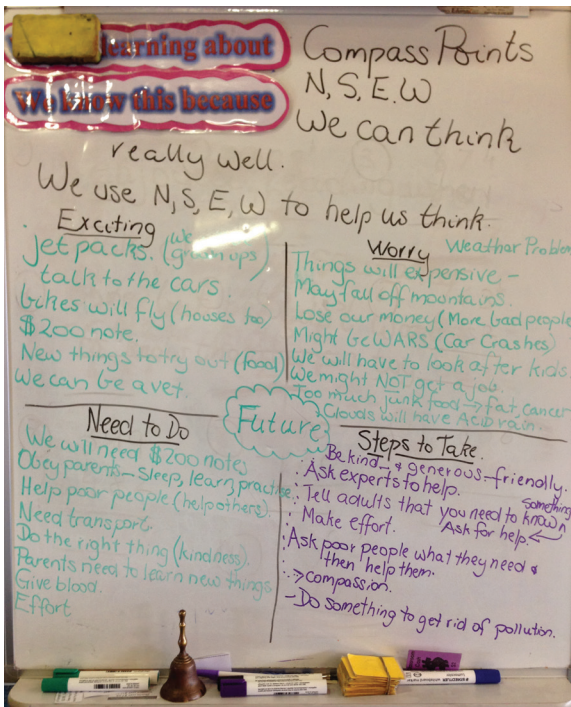 learning about
We know this because
Compass Points
N, S, E, W
We can think
really well.
We use N, S, E, W to help us think.
Exciting
jet packs. (
grown ups)
talk to the cars.
bikes will fly (houses too)
$200 note.
New things to try out (food)
We can be a vet.
Worry
Weather Problem
Things will expensive –
May fall off mountains.
Lose our money (More bad people
Might be WARS (Car Crashes)
We will have to look after kids
We might NOT get a job.
Too much junk food → fat, cancer
Clouds will have Acid rain.
Future
Need to Do
We will need $200 notes
Obey parents – sleep, learn, practise
Help poor people (help others)
Need transport.
Do the right thing (kindness).
Parents need to learn new things
Give blood.
Effort
Steps to Take.
Be kind – & generous – friendly.
Ask experts to help.
Tell adults that you need to know something
Make effort. Ask for help ←
Ask poor people what they need &
then help them.
→ compassion.
– Do something to get rid of pollution.
STAEDTLER